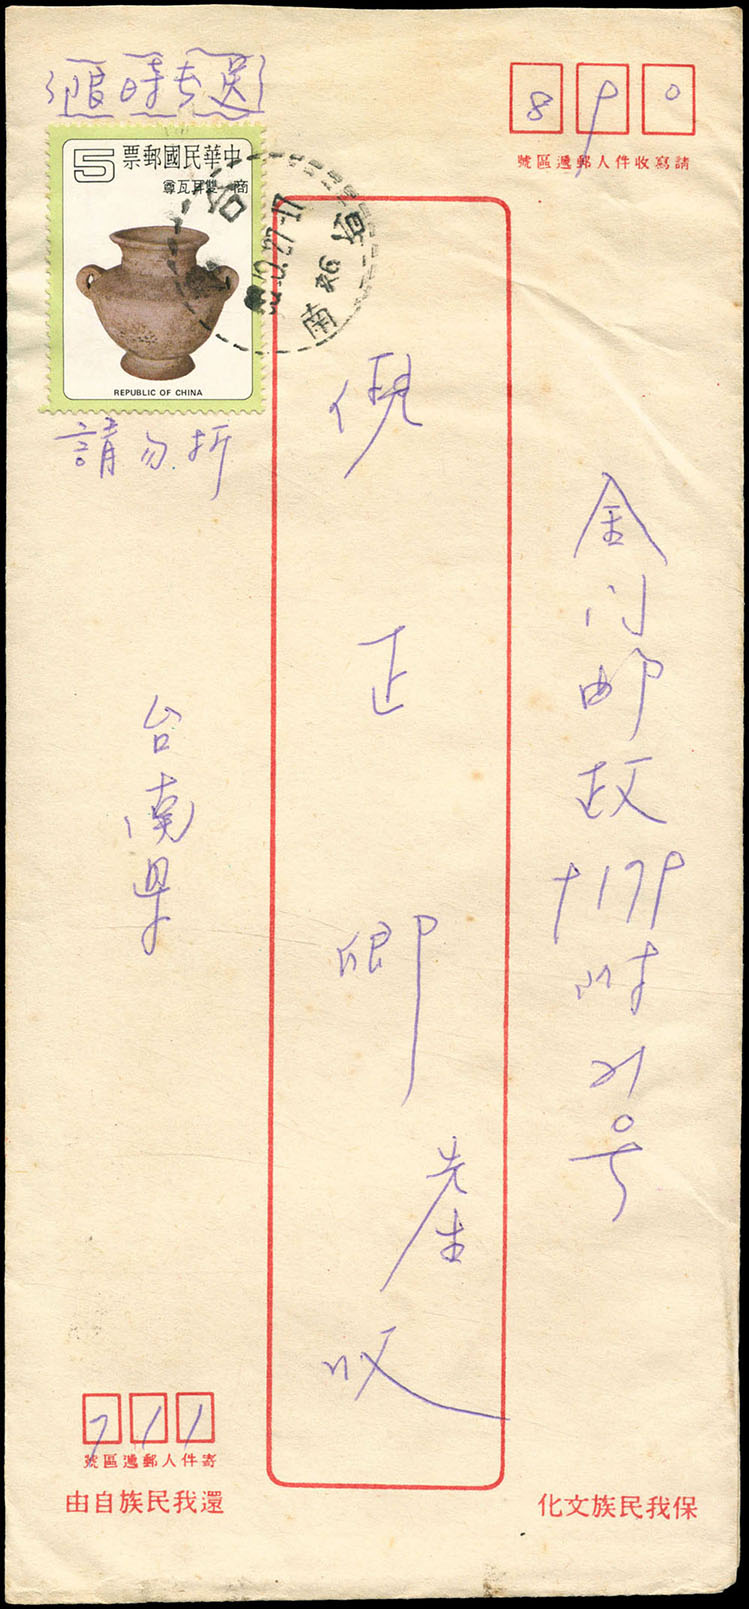 限時专送
890
請寫收件人郵遞區號
中華民國郵票 5
商 雙耳瓦尊
REPUBLIC OF CHINA
台南
請勿折
金门邮政9179附21号
倪正卿先生收
台南県
711
寄件人郵遞區號
保我民族文化
還我民族自由